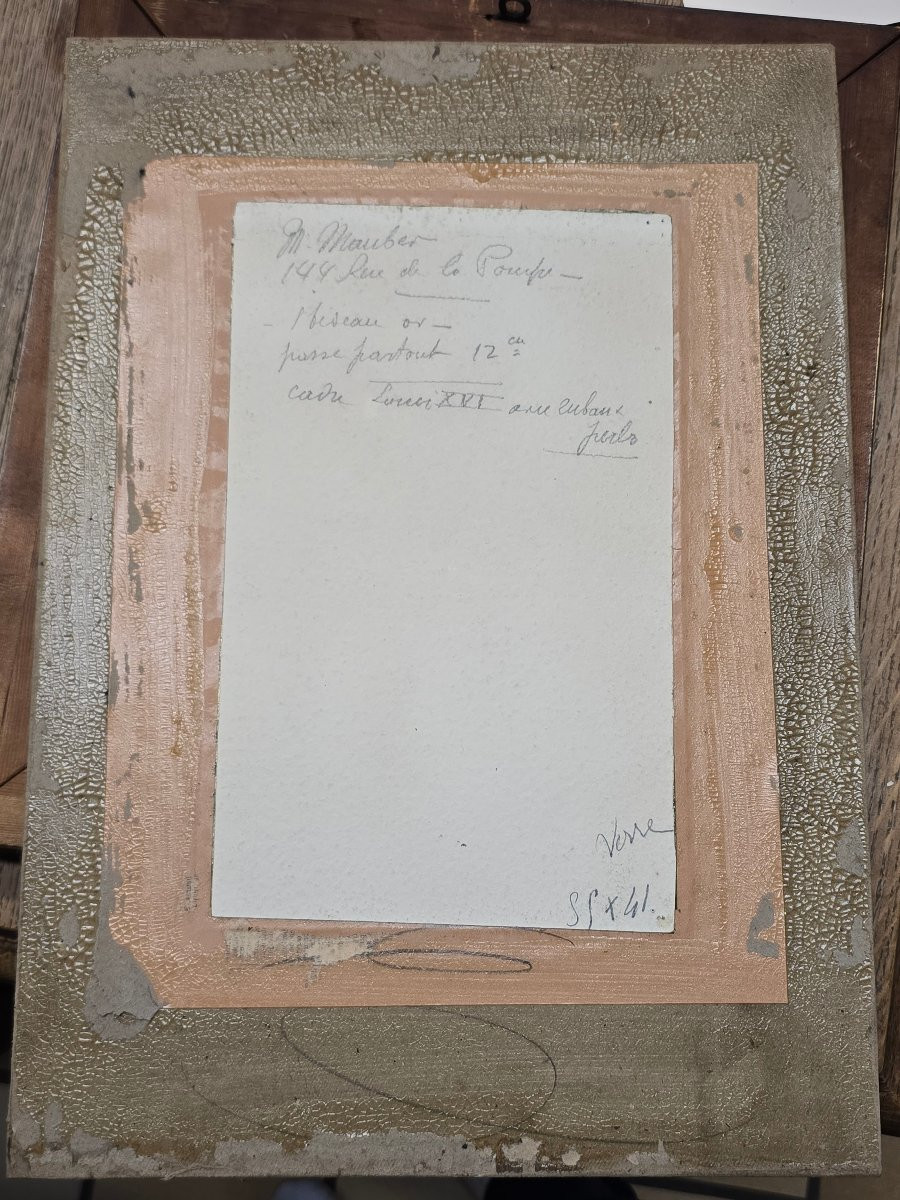 M. Mauber
144 Rue de la Pompe —
- 1 biseau or —
passe partout 12 cm
cadre Louis XVI avec rubans
perles
Verre
55 x 41.